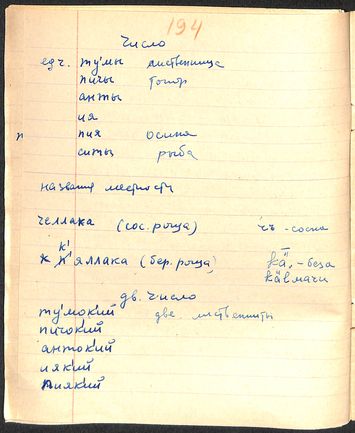 194
Число
ед ч. тумы лиственница
пичы топор
анты
ия
п пия осина
ситы рыба
название местности
челлака (сос. роща) чъ - сосна
к к' яллака (бер. роща)
дв. число
ту́мокий две лиственницы
пичокий
антокий
иякий
пиякий